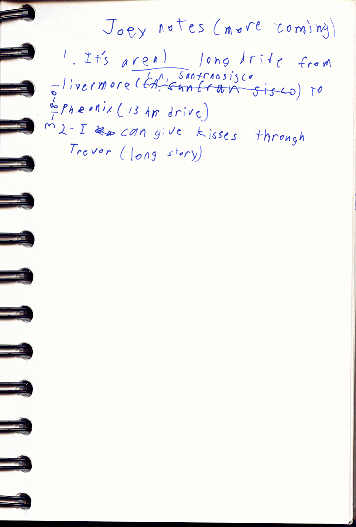 Joey notes (more coming)
1. It's a real long drite from
in, Sanfransisco
livermore ( ) to
pheonix (13 hr drive)
2- I can give kisses through
Trevor (long story)